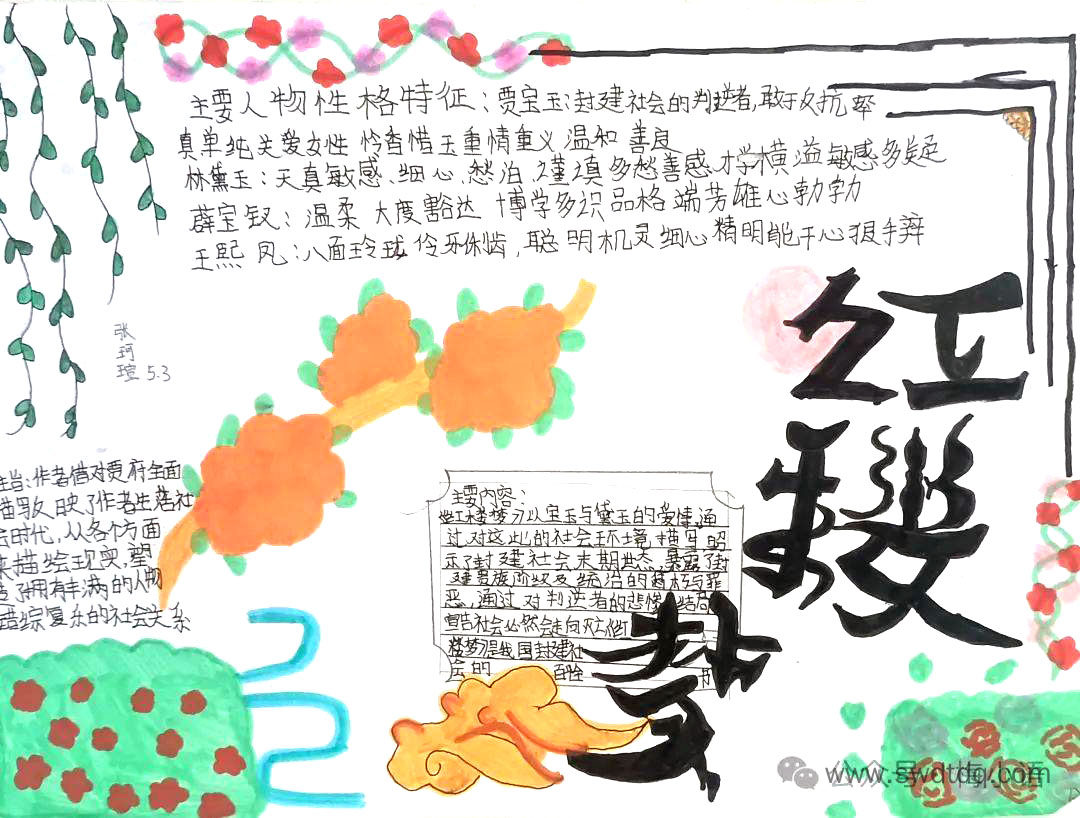 主要人物性格特征：贾宝玉：封建社会的判逆者，敢于反抗率
真单纯关爱女性 怜香惜玉重情重义 温和 善良
林黛玉：天真敏感、细心、愁泊、谨慎多愁善感、才学横溢敏感多疑
薛宝钗：温柔 大度豁达 博学多识 品格 端芳雄心勃勃
王熙凤：八面玲珑 伶牙俐齿，聪明机灵细心精明能干心狠手辣
红
楼
梦
张
珂
瑄 5.3
作者借对贾府全面
描写反映了作者生活社
会时代，从各个方面
来描绘现实，塑
造了拥有丰满的人物
错综复杂的社会关系
主要内容：
红楼梦分以宝玉与黛玉的爱情，通
过对这此的社会环境描写，昭
示了封建社会末期世态，暴露了封
建贵族阶级及统治的腐朽与罪
恶，通过对判逆者的悲惨结局
宣告社会必然会走向灭亡他
楼梦是我国封建社
会的 百 的
公众号
www.swdtdq.com